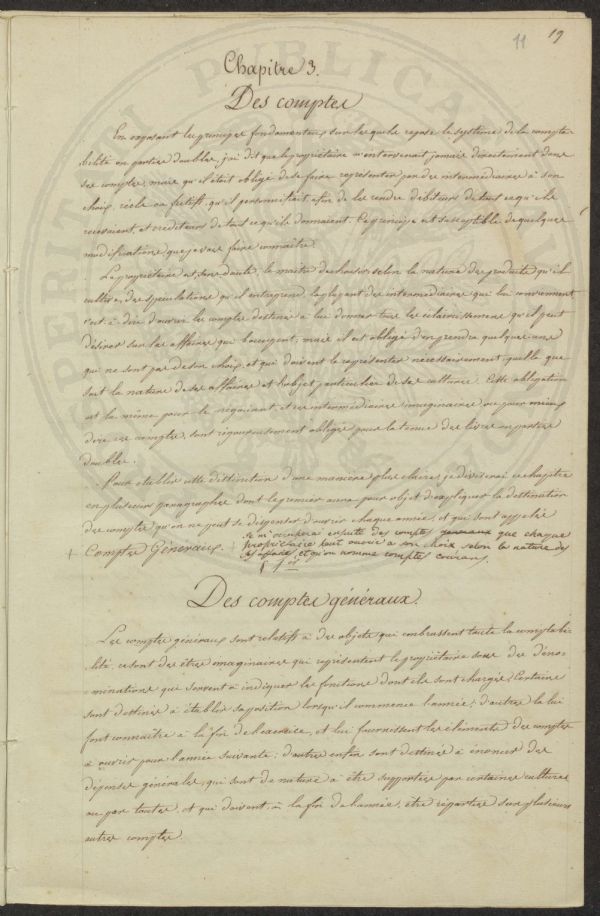 11 19
Chapitre 3.
Des comptes
En exposant les principes fondamentaux sur lesquels repose le système de la compta-
bilité en parties doubles, j'ai dit que le propriétaire n'intervenait jamais directement dans
ses comptes, mais qu'il était obligé de se faire représenter par des intermédiaires à son
choix, réels ou fictifs, qu'il personnifiait afin de les rendre débiteurs de tout ce qu'ils
recevaient, et créditeurs de tout ce qu'ils donnaient. Ce principe est susceptible de quelques
modifications que je vais faire connaître.
Le propriétaire est sans doute, le maître de choisir selon la nature des produits qu'il
cultive, des spéculations qu'il entreprend la plupart des intermédiaires qui lui conviennent
c'est à dire d'ouvrir les comptes destinés à lui donner tous les éclaircissements qu'il peut
désirer sur les affaires qui l'occupent; mais il est obligé d'en prendre quelques-uns
qui ne sont pas de son choix, et qui doivent le représenter nécessairement quelle que
soit la nature de ses affaires et l'objet particulier de ses cultures. Cette obligation
est la même pour le négociant, et ces intermédiaires imaginaires ou pour mieux
dire ces comptes, sont rigoureusement obligés pour la tenue des livres en parties
doubles.
Pour établir cette distinction d'une manière plus claire, je diviserai ce chapitre
en plusieurs paragraphes dont le premier aura pour objet d'expliquer la destination
des comptes qu'on ne peut se dispenser d'ouvrir chaque année, et qui sont appelés
Comptes Généraux. + je m'occuperai ensuite des comptes généraux que chaque
+ propriétaire peut ouvrir à son choix selon la nature des
ses affaires, et qu'on nomme comptes courans.
§ 1er
Des comptes généraux.
Les comptes généraux sont relatifs à des objets qui embrassent toute la comptabi-
lité, ce sont des êtres imaginaires qui représentent le propriétaire sous des déno-
minations qui servent à indiquer les fonctions dont ils sont chargés; Certains
sont destinés à établir sa position lorsqu'il commence l'année; d'autres la lui
font connaître à la fin de l'exercice, et lui fournissent les éléments des comptes
à ouvrir pour l'année suivante; d'autres enfin sont destinés à énoncer des
dépenses générales, qui sont de nature à être supportées par certaines cultures
ou par toutes, et qui doivent, à la fin de l'année, être réparties sur plusieurs
autres comptes.